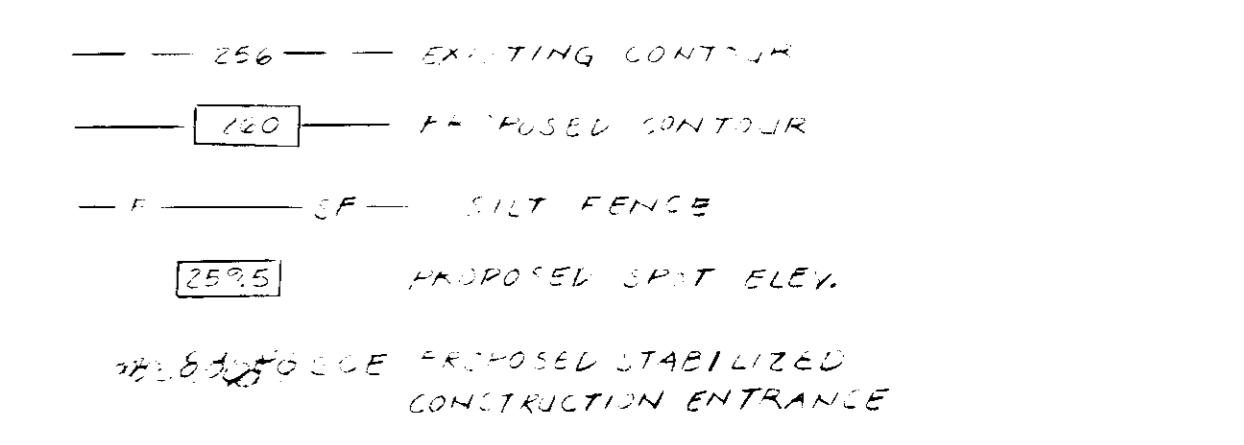 256 EXISTING CONTOUR
260 PROPOSED CONTOUR
SF SILT FENCE
259.5 PROPOSED SPOT ELEV.
SCE PROPOSED STABILIZED
CONSTRUCTION ENTRANCE